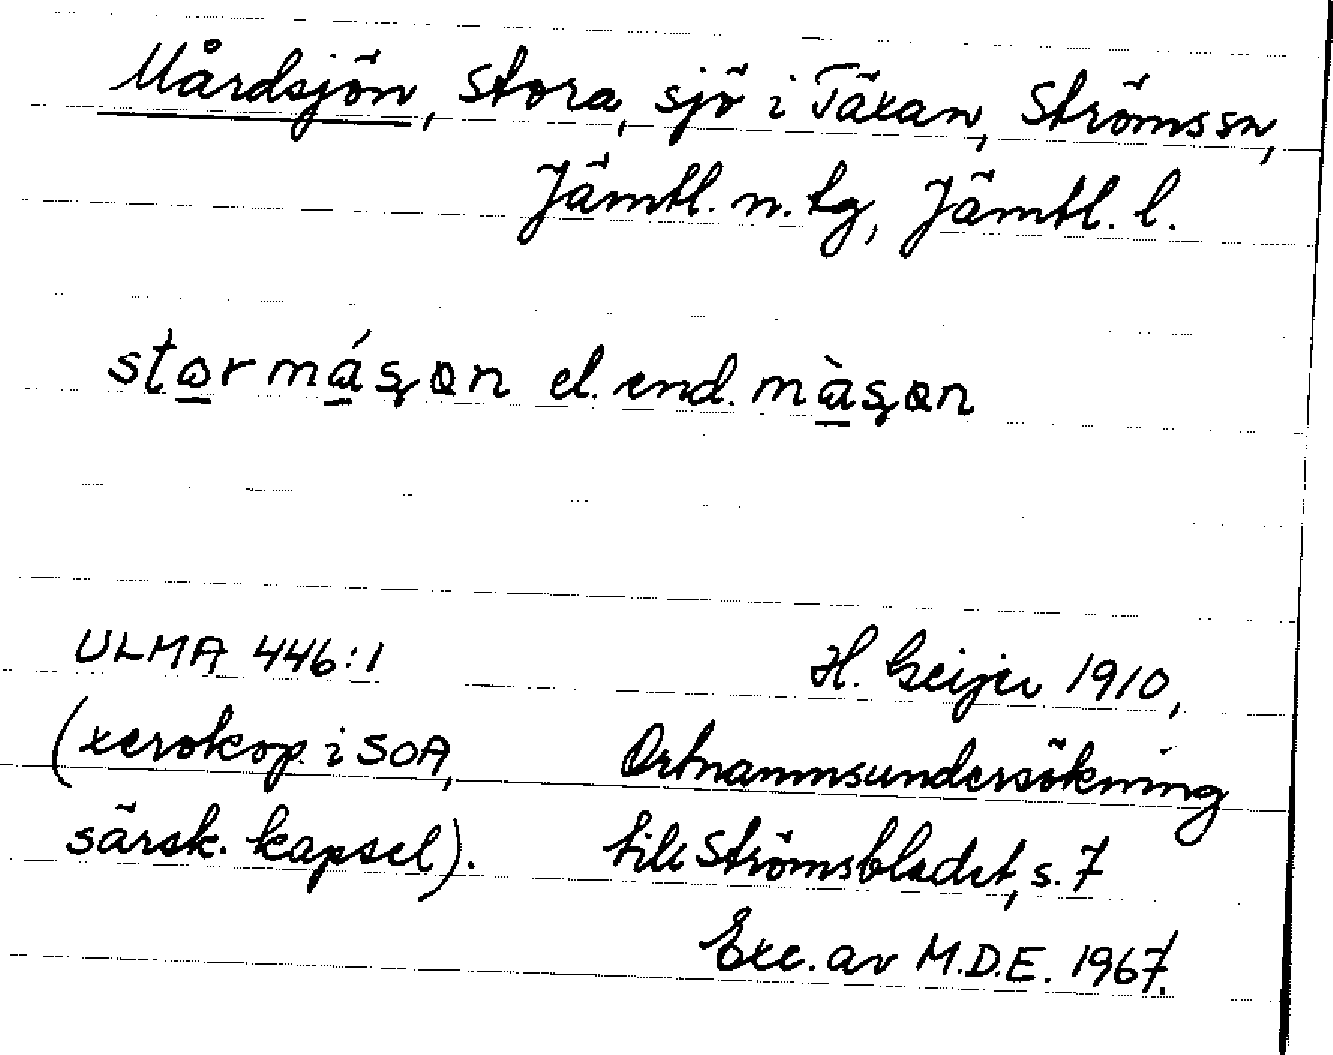 Mårdsjön, Stora, sjö i Täxan, Ströms sn,
Jämtl. n. tg, Jämtl. l.
stor máşɷn el. end. màşɷn
ULMA 446:1 H. Geijer 1910,
(xerokop. i SOA, Ortnamnsundersökning
särsk. kapsel). till Strömsbladet, s. 7
Exc. av M.D.E. 1967.